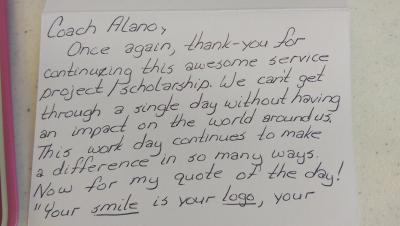 Coach Alano,
Once again, thank-you for
continuing this awesome service
project/scholarship. We can't get
through a single day without having
an impact on the world around us.
This work day continues to make
a difference in so many ways.
Now for my quote of the day!
"Your smile is your logo, your